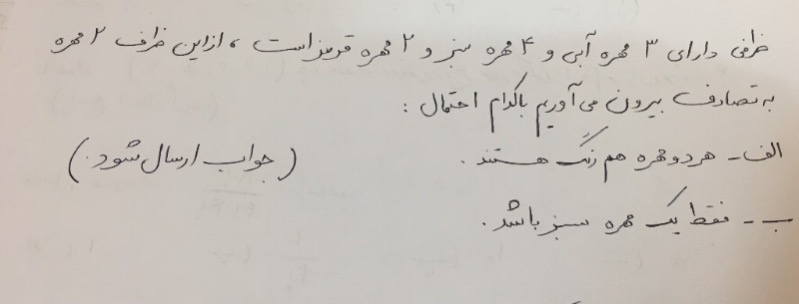 ظرفی دارای ۳ مهره آبی و ۴ مهره سبز و ۲ مهره قرمز است ، از این ظرف ۲ مهره
به تصادف بیرون می آوریم با کدام احتمال :
الف - هر دو مهره هم رنگ هستند . (جواب ارسال شود.)
ب - فقط یک مهره سبز باشد.